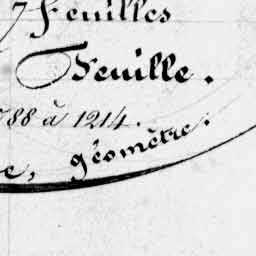 7 Feuilles
Feuille.
788 à 1214.
e, géomètre.